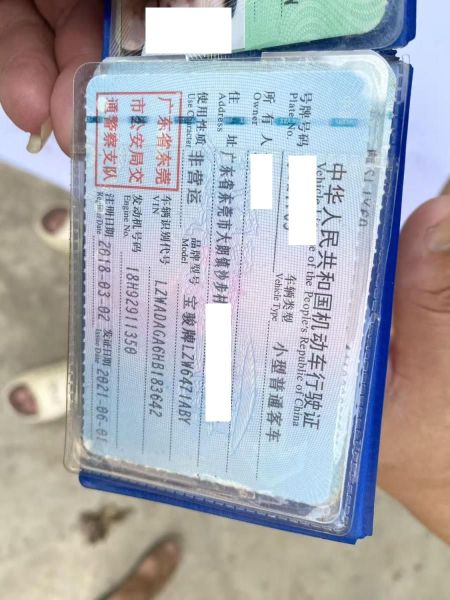 中华人民共和国机动车行驶证
of the People's Republic of China
号牌号码 车辆类型 小型普通客车
Plate No. Vehicle Type
所有人
Owner
住址 广东省东莞市大朗镇沙步村
Address
使用性质 非营运 品牌型号 宝骏牌LZW6421ABY
Use Character Model
广东省东莞
市公安局交
通警察支队
车辆识别代号 LZWADAGA6HB183642
VIN
发动机号码 18H92911350
Engine No.
注册日期 2018-03-02 发证日期 2021-06-01
Register Date Issue Date